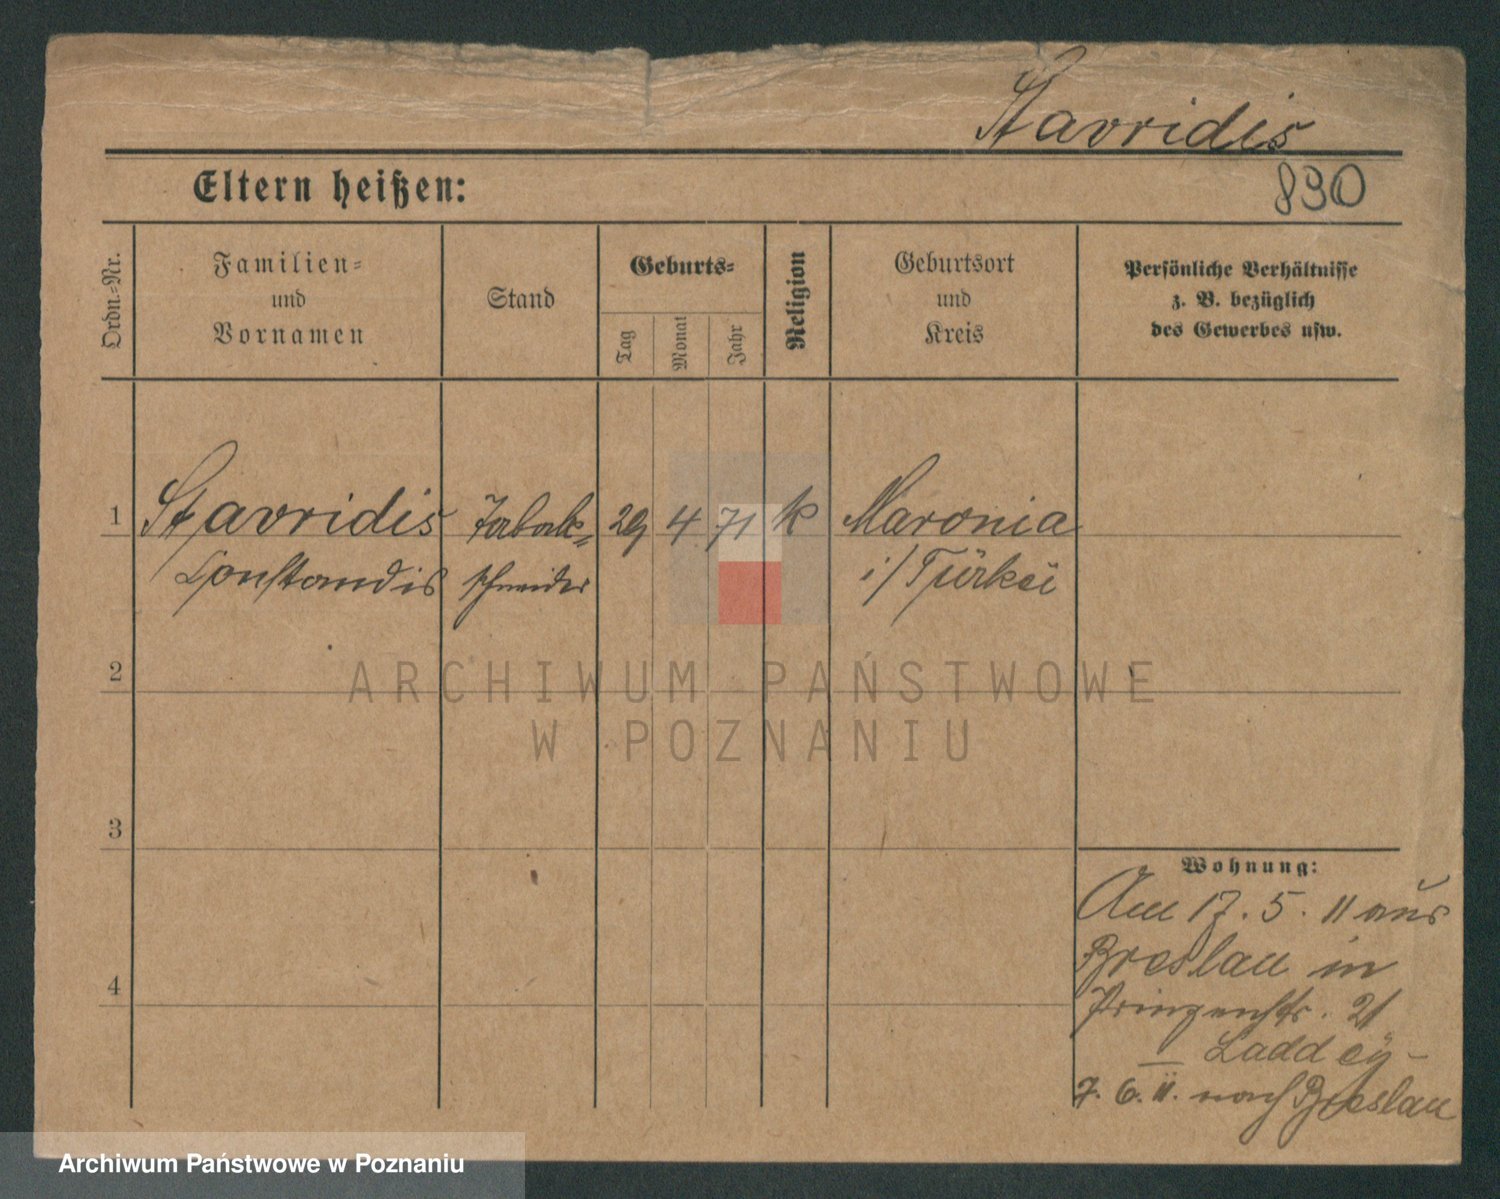 Stavridis
Eltern heißen:
830
Ordn.-Nr.
Familien-
und
Vornamen
Stand
Geburts-
Tag
Monat
Jahr
Religion
Geburtsort
und
Kreis
Persönliche Verhältnisse
z. B. bezüglich
des Gewerbes usw.
1
Stavridis
Constandis
Tabak-
schneider
29
4
71
k
Maronia
i/Türkei
2
3
4
Wohnung:
Am 17. 5. 11 aus
Breslau in
Prinzenstr. 21
– Laddey –
7. 6. 11. nach Breslau
ARCHIWUM PAŃSTWOWE
W POZNANIU
Archiwum Państwowe w Poznaniu